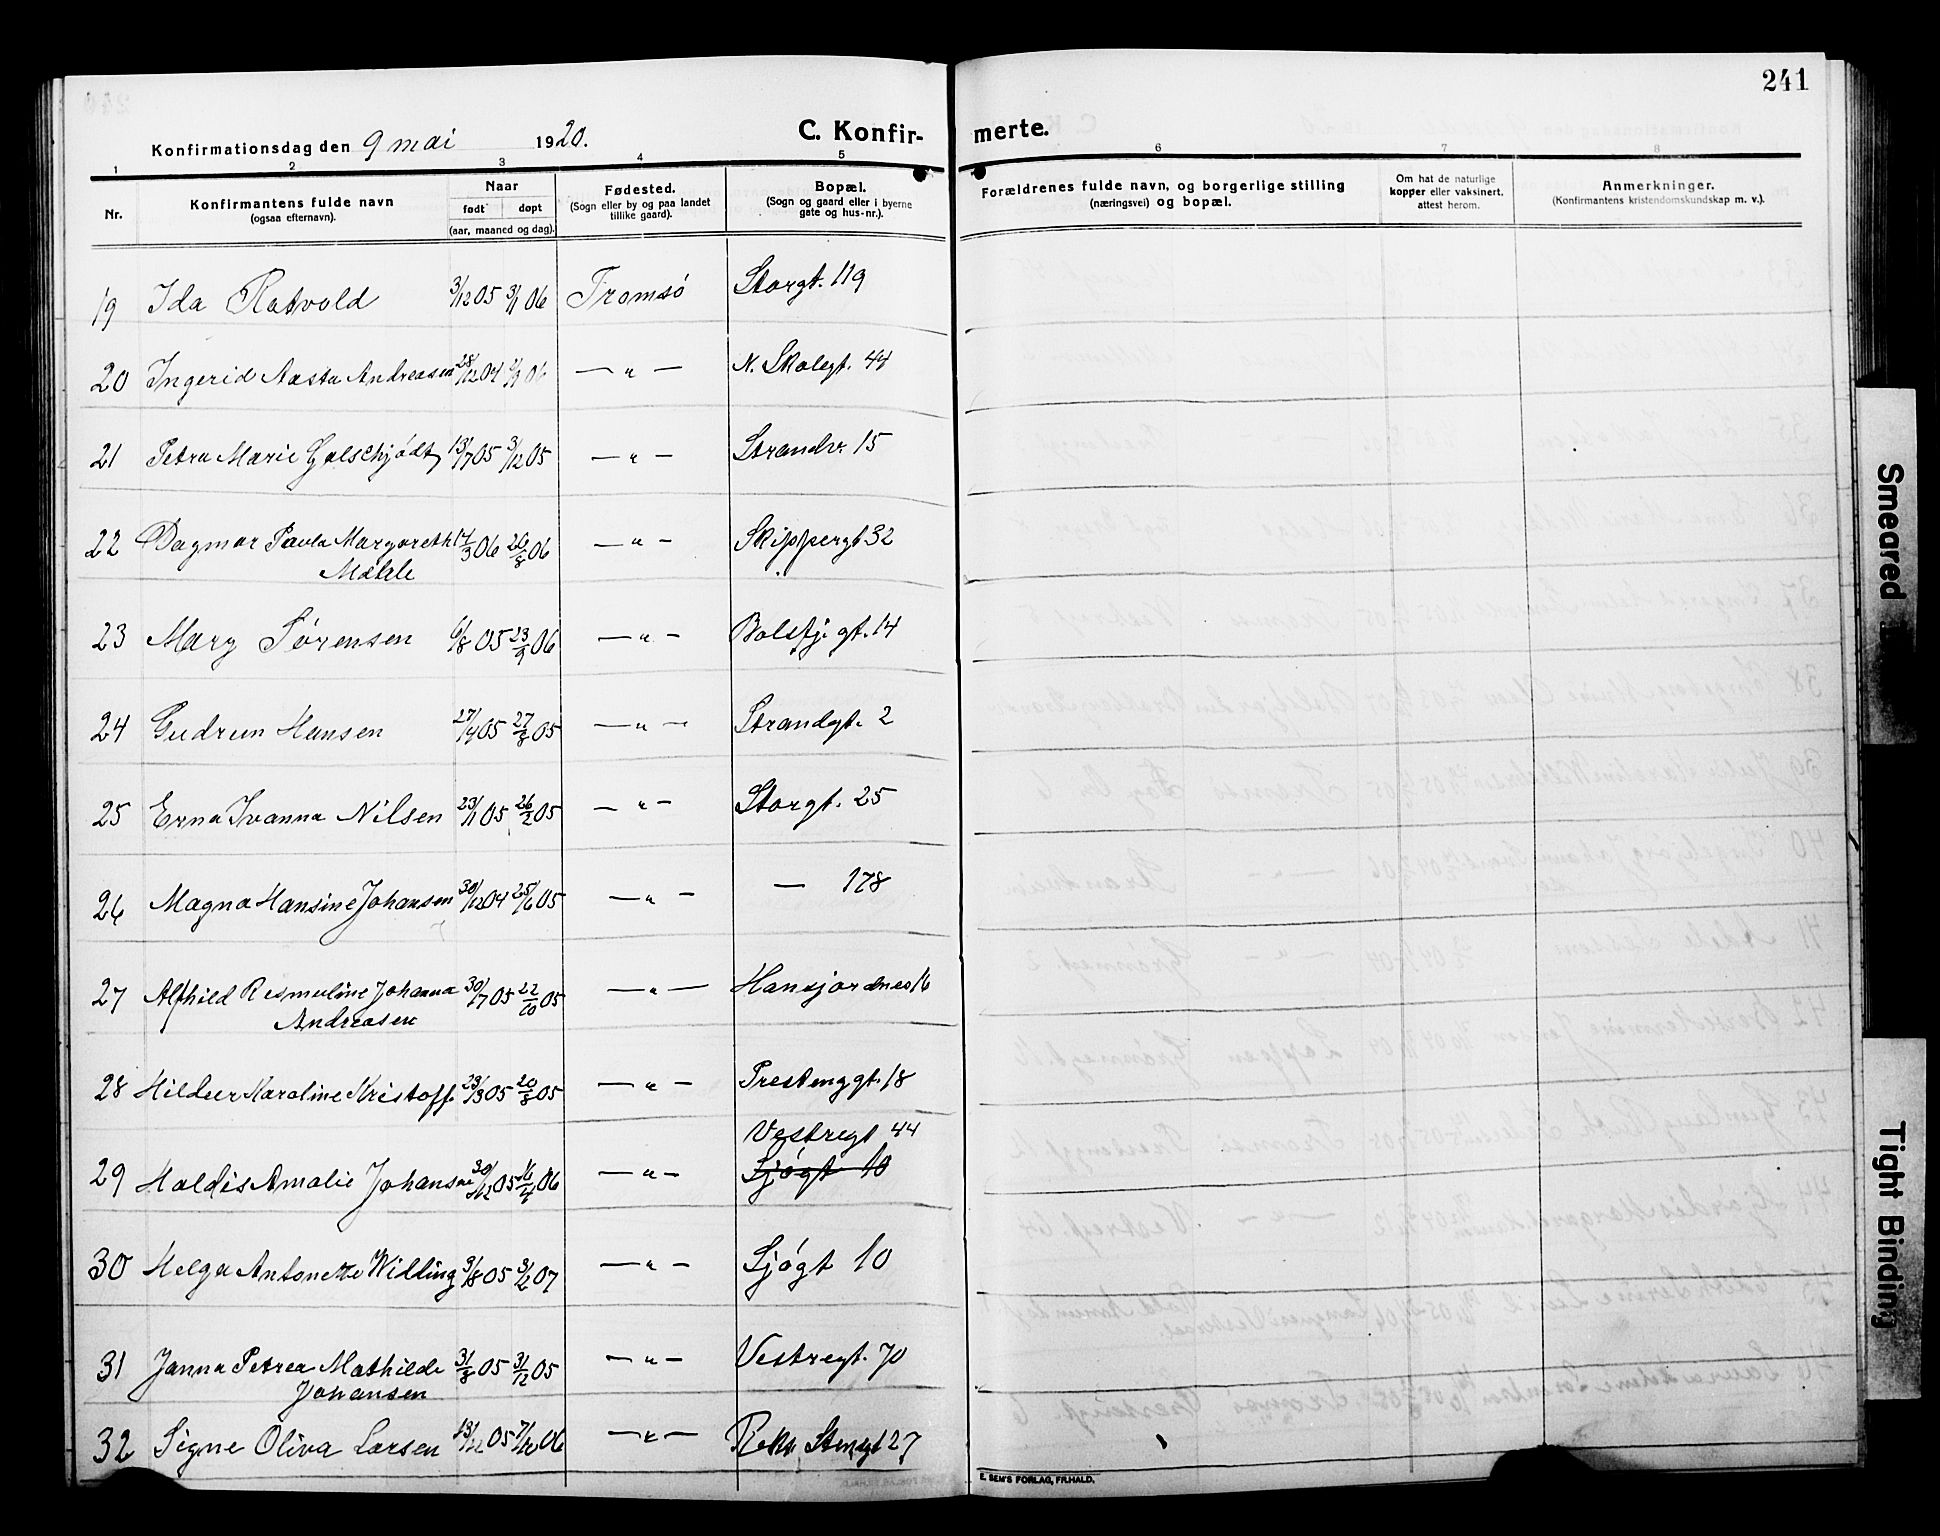 241
C. Konfir- merte.
Konfirmationsdag den 9 mai 1920.
1 2 3 4 5 6 7 8
Nr.
Konfirmantens fulde navn
(ogsaa efternavn).
Naar
født døpt
(aar, maaned og dag).
Fødested.
(Sogn eller by og paa landet
tillike gaard).
Bopæl.
(Sogn og gaard eller i byerne
gate og hus-nr.).
Forældrenes fulde navn, og borgerlige stilling
(næringsvei) og bopæl.
Om hat de naturlige
kopper eller vaksinert.
attest herom.
Anmerkninger.
(Konfirmantens kristendomskundskap m. v.).
19 Ida Rotvold 3/12 05 3/1 06 Tromsö Storgt. 119
20 Ingerid Aasta Andreasen 28/12 04 06 — " — N. Skolegt. 44
21 Petra Marie Galschjödt 13/7 05 3/12 05 — " — Strandv. 15
22 Dagmar Paula Margareth 14/3 06 26/8 06 — " — Skippergt 32
Mæhle
23 Mary Sørensen 6/8 05 23/9 06 — " — Balsfj. gt. 14
24 Gudrun Hansen 27/4 05 27/8 05 — " — Strandgt. 2
25 Erna Ivanna Nilsen 23/1 05 26/2 05 — " — Storgt. 25
26 Magna Hansine Johansen 30/12 04 25/6 05 — " — — 178
27 Alfhild Rasmuline Johanna 30/7 05 22/10 05 — " — Hansjordnes 16
Andreasen
28 Hildur Karoline Kristoff. 23/3 05 20/8 05 — " — Prestenggt. 18
Vestregt 44
29 Haldis Amalie Johansen 30/12 05 16/4 06 — " — Sjøgt 10
30 Helga Antonette Widting 3/8 05 3/2 07 — " — Sjøgt 10
31 Janna Petrea Mathilde 31/8 05 31/12 05 — " — Vestregt. 70
Johansen
32 Signe Oliva Larsen 13/12 05 7/10 06 — " — 27
E. SEM'S FORLAG, FR.HALD.
Smeared
Tight Binding